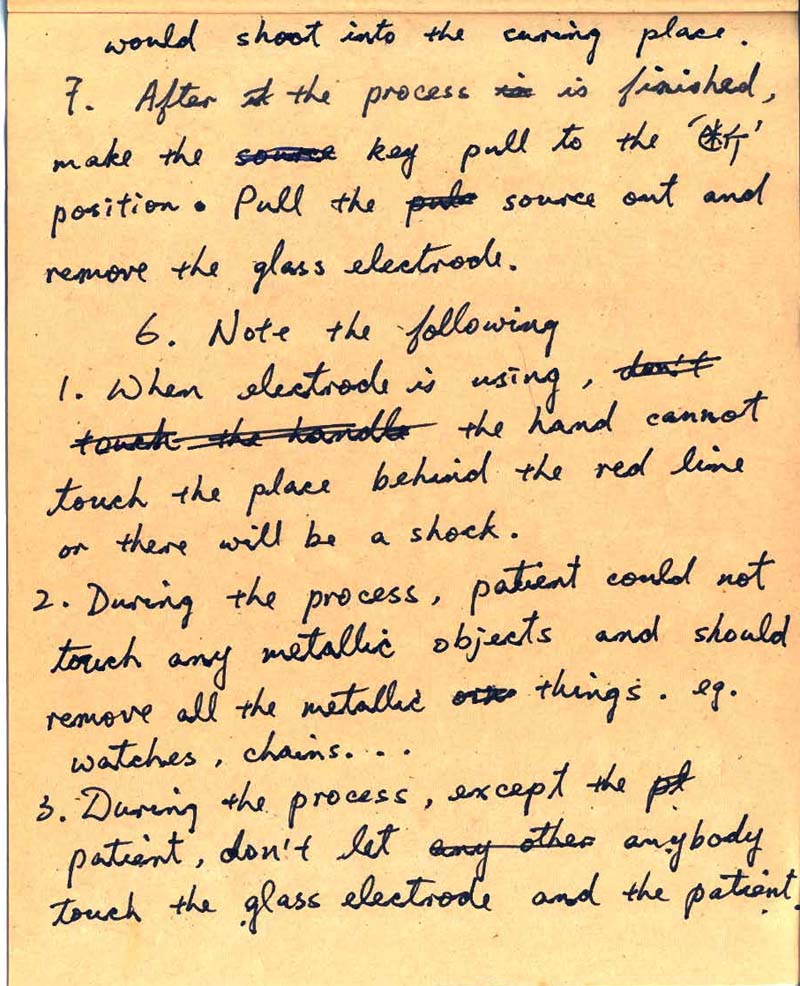 would shoot into the curing place.
7. After it the process in is finished,
make the source key pull to the '断'
position. Pull the pule source out and
remove the glass electrode.
6. Note the following
1. When electrode is using, don't
touch the handle the hand cannot
touch the place behind the red line
or there will be a shock.
2. During the process, patient could not
touch any metallic objects and should
remove all the metallic things. eg.
watches, chains...
3. During the process, except the pt
patient, don't let any other anybody
touch the glass electrode and the patient.